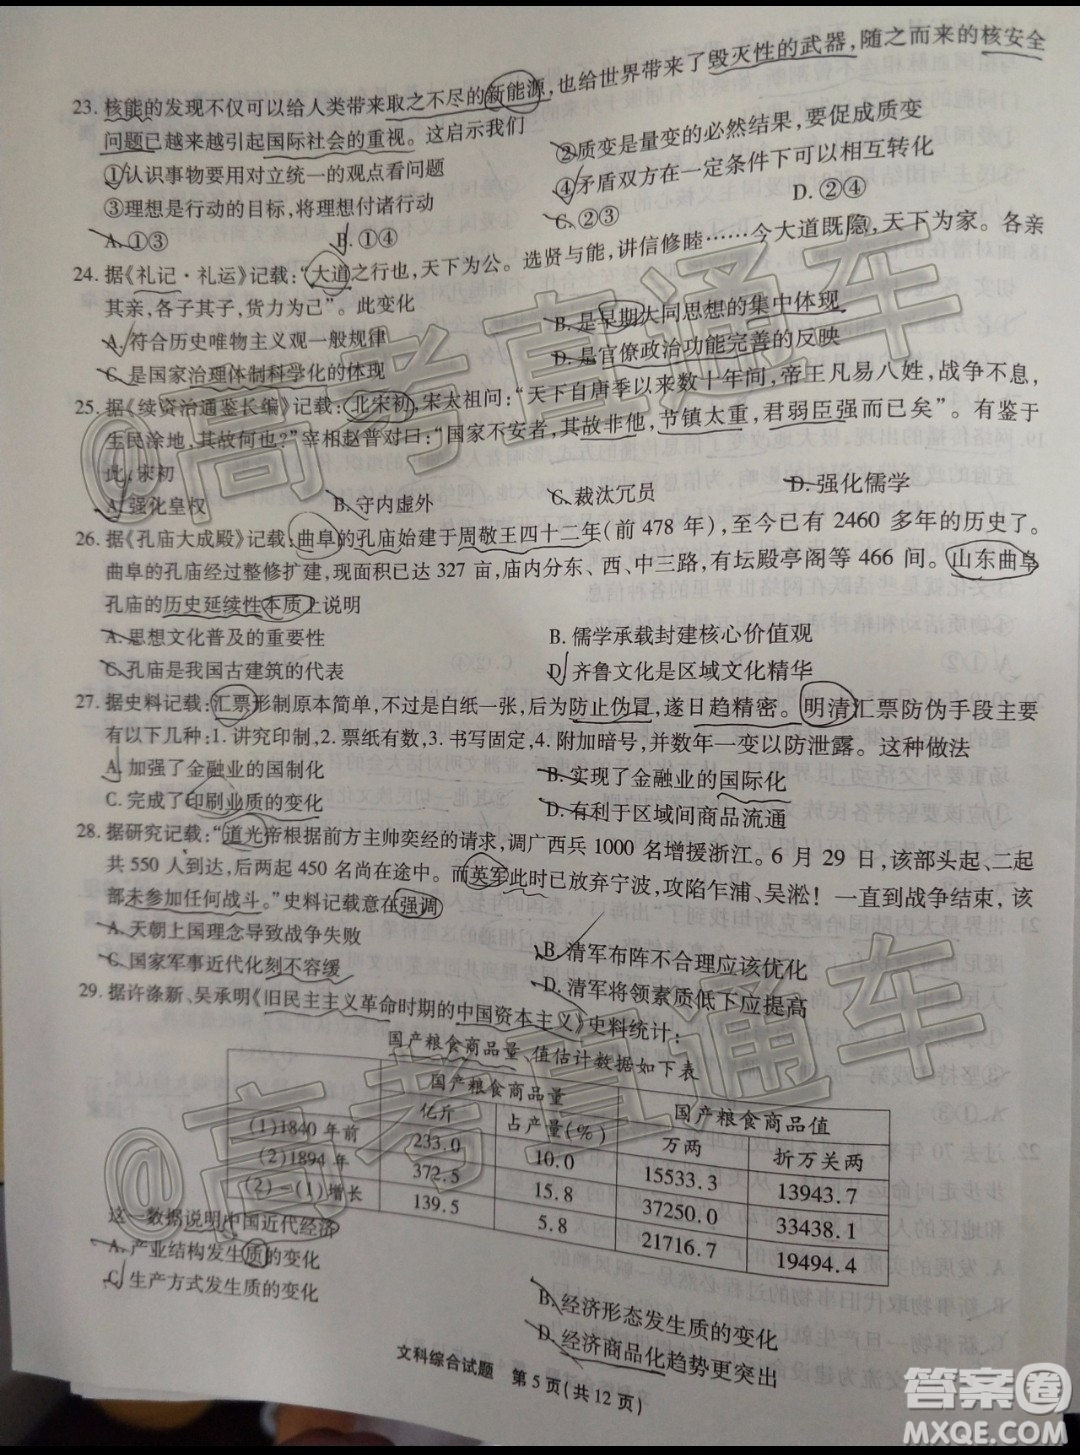 23. 核能的发现不仅可以给人类带来取之不尽的新能源,也给世界带来了毁灭性的武器,随之而来的核安全
问题已越来越引起国际社会的重视。这启示我们
①认识事物要用对立统一的观点看问题 ②质变是量变的必然结果,要促成质变
③理想是行动的目标,将理想付诸行动 ④矛盾双方在一定条件下可以相互转化
A. ①③ B. ①④ C. ②③ D. ②④
24. 据《礼记·礼运》记载:“大道之行也,天下为公。选贤与能,讲信修睦……今大道既隐,天下为家。各亲
其亲,各子其子,货力为己”。此变化
A. 符合历史唯物主义观一般规律 B. 是早期大同思想的集中体现
C. 是国家治理体制科学化的体现 D. 是官僚政治功能完善的反映
25. 据《续资治通鉴长编》记载:北宋初,宋太祖问:“天下自唐季以来数十年间,帝王凡易八姓,战争不息,
生民涂地,其故何也?”宰相赵普对曰:“国家不安者,其故非他,节镇太重,君弱臣强而已矣”。有鉴于
此,宋初
A. 强化皇权 B. 守内虚外 C. 裁汰冗员 D. 强化儒学
26. 据《孔庙大成殿》记载:曲阜的孔庙始建于周敬王四十二年(前 478 年),至今已有 2460 多年的历史了。
曲阜的孔庙经过整修扩建,现面积已达 327 亩,庙内分东、西、中三路,有坛殿亭阁等 466 间。山东曲阜
孔庙的历史延续性本质上说明
A. 思想文化普及的重要性 B. 儒学承载封建核心价值观
C. 孔庙是我国古建筑的代表 D. 齐鲁文化是区域文化精华
27. 据史料记载:汇票形制原本简单,不过是白纸一张,后为防止伪冒,遂日趋精密。明清汇票防伪手段主要
有以下几种:1. 讲究印制,2. 票纸有数,3. 书写固定,4. 附加暗号,并数年一变以防泄露。这种做法
A. 加强了金融业的国制化 B. 实现了金融业的国际化
C. 完成了印刷业质的变化 D. 有利于区域间商品流通
28. 据研究记载:“道光帝根据前方主帅奕经的请求,调广西兵 1000 名增援浙江。6 月 29 日,该部头起、二起
共 550 人到达,后两起 450 名尚在途中。而英军此时已放弃宁波,攻陷乍浦、吴淞!一直到战争结束,该
部未参加任何战斗。”史料记载意在强调
A. 天朝上国理念导致战争失败 B. 清军布阵不合理应该优化
C. 国家军事近代化刻不容缓 D. 清军将领素质低下应提高
29. 据许涤新、吴承明《旧民主主义革命时期的中国资本主义》史料统计:
国产粮食商品量、值估计数据如下表
国产粮食商品量 国产粮食商品值
亿斤 占产量(%) 万两 折万关两
(1)1840 年前 233.0 10.0 15533.3 13943.7
(2)1894 年 372.5 15.8 37250.0 33438.1
(2)-(1)增长 139.5 5.8 21716.7 19494.4
这一数据说明中国近代经济
A. 产业结构发生质的变化 B. 经济形态发生质的变化
C. 生产方式发生质的变化 D. 经济商品化趋势更突出
文科综合试题 第 5 页(共 12 页)
@高考直通车
@高考直通车
答案圈
MXQE.COM